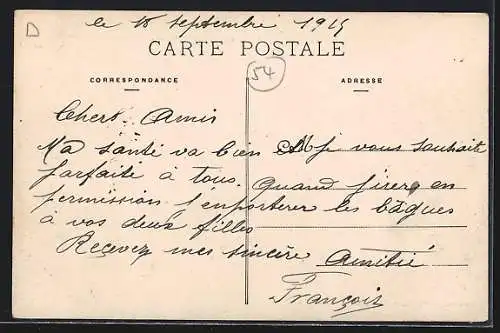 le 18 septembre 1915
CARTE POSTALE
D
54
CORRESPONDANCE
ADRESSE
Chers Amis
Ma santé va bien je vous souhaite
parfaite à tous. Quand j'irere en
permission j'enporterer les bagues
à vos deux filles
Recevez mes sincère Amitié
François